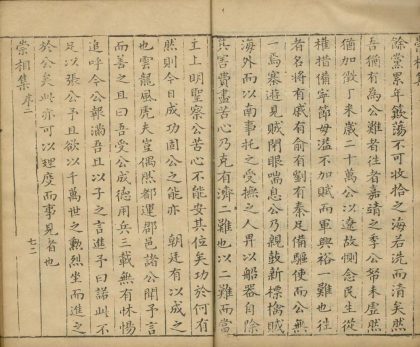 餘黨累年簸蕩不可收拾之海若洗而清矣然
吾猶有為公難者往者嘉靖之季公帑未虛然
猶加徵丁米歲二十萬公以遼故惻念民生從
權措備寧節毋濫不加賦而軍興裕一難也往
者名將有戚有俞有劉有秦足備驅使而公無
一焉寨遊見賊閉眼喘息公乃親鼓新標擒賊
海外而以南事托之受撫之人弁以船器自除
其害費盡苦心乃克有濟二難也以二難而當
主上明聖察公苦心不能安其位矣功於何有
然則今日成功固公之能亦 朝廷有以成之
也雲龍風虎夫豈偶然都運郡邑諸公聞予言
而善之且曰吾受公成德用兵三載無有怵惕
追呼今公報滿吾且以子之言進予曰諾此不
足以張公予且欲以千萬世之勲烈坐而進之
於公矣此亦可以理度而事見者也
崇相集 序二
七二